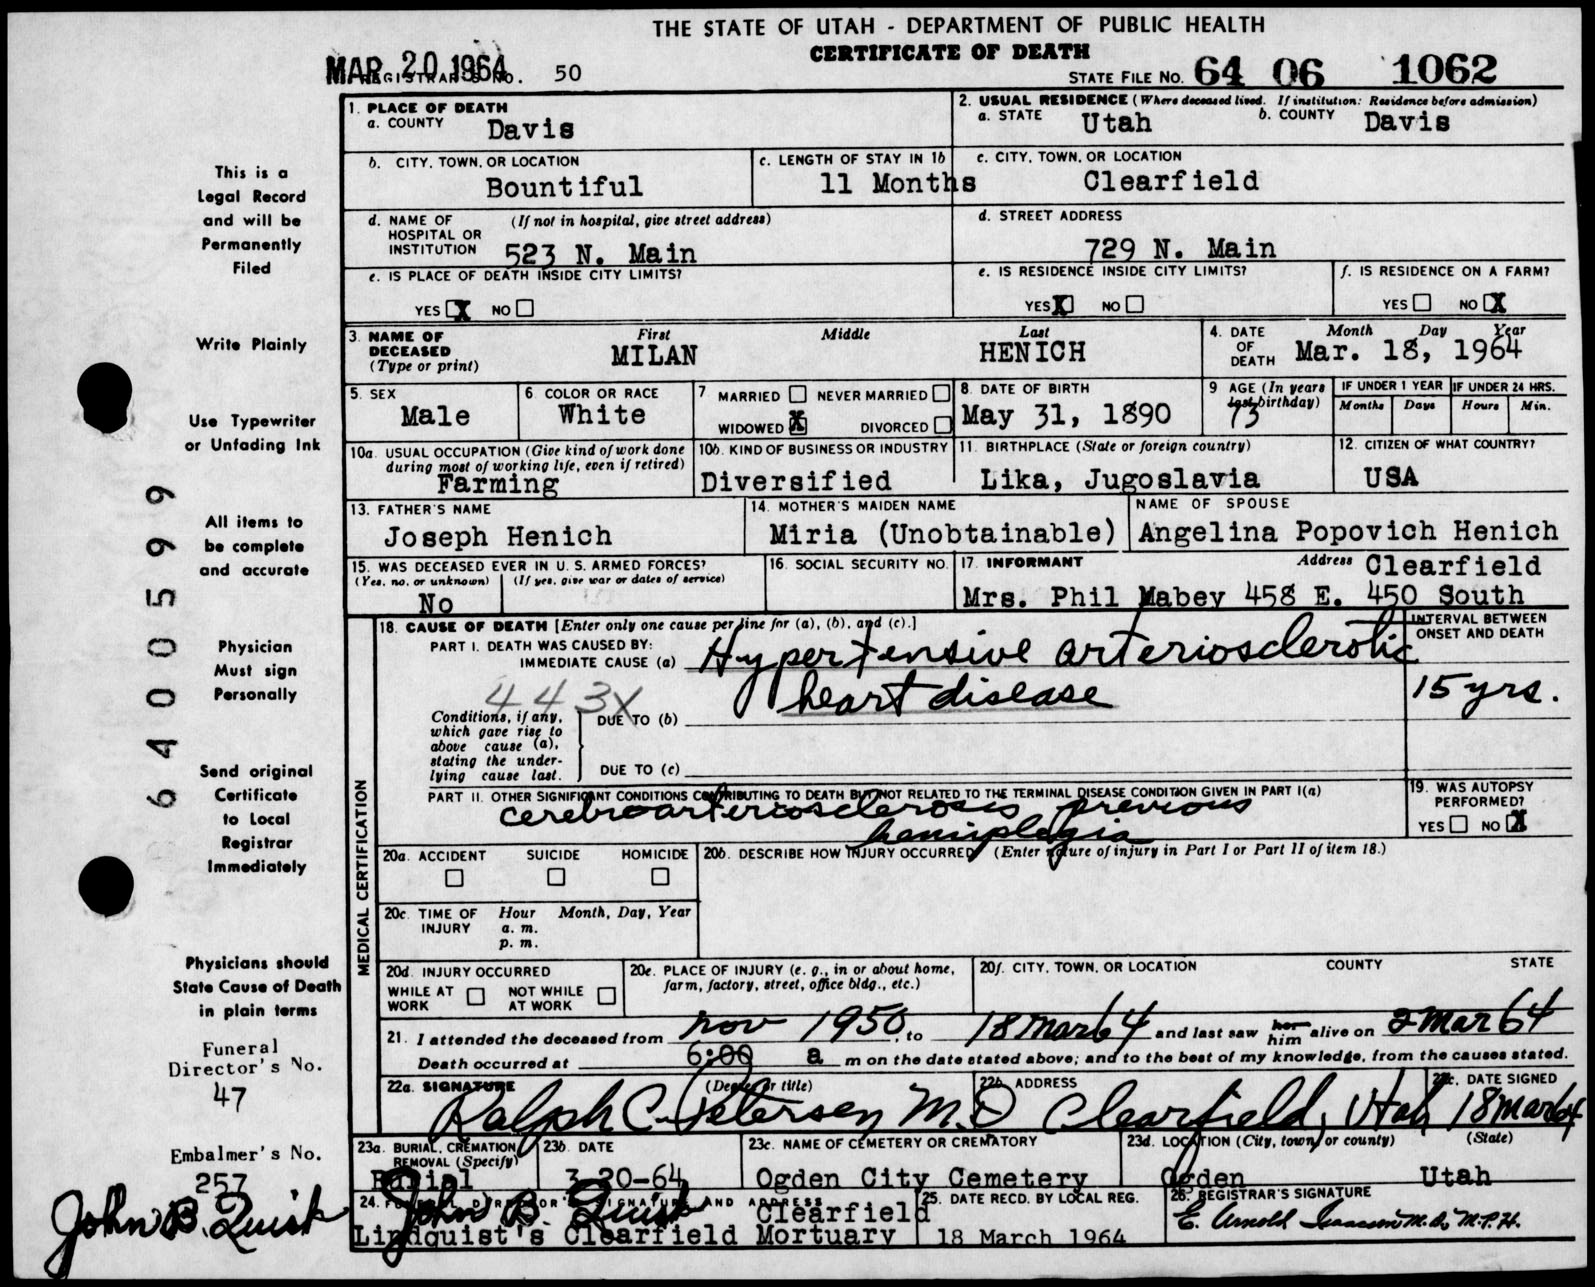 THE STATE OF UTAH - DEPARTMENT OF PUBLIC HEALTH
CERTIFICATE OF DEATH
MAR 20 1964
REGISTRAR'S NO. 50
STATE FILE NO. 64 06 1062
This is a
Legal Record
and will be
Permanently
Filed
Write Plainly
Use Typewriter
or Unfading Ink
All items to
be complete
and accurate
Physician
Must sign
Personally
Send original
Certificate
to Local
Registrar
Immediately
Physicians should
State Cause of Death
in plain terms
Funeral
Director's No.
47
Embalmer's No.
257
John B. Quist
6400599
1. PLACE OF DEATH
a. COUNTY Davis
2. USUAL RESIDENCE (Where deceased lived. If institution: Residence before admission)
a. STATE Utah b. COUNTY Davis
b. CITY, TOWN, OR LOCATION
Bountiful
c. LENGTH OF STAY IN 1b
11 Months
c. CITY, TOWN, OR LOCATION
Clearfield
d. NAME OF HOSPITAL OR INSTITUTION (If not in hospital, give street address)
523 N. Main
d. STREET ADDRESS
729 N. Main
e. IS PLACE OF DEATH INSIDE CITY LIMITS?
YES X NO
e. IS RESIDENCE INSIDE CITY LIMITS?
YES X NO
f. IS RESIDENCE ON A FARM?
YES NO X
3. NAME OF DECEASED (Type or print)
First Middle Last
MILAN HENICH
4. DATE OF DEATH Month Day Year
Mar. 18, 1964
5. SEX
Male
6. COLOR OR RACE
White
7 MARRIED NEVER MARRIED
WIDOWED X DIVORCED
8. DATE OF BIRTH
May 31, 1890
9 AGE (In years last birthday)
73
IF UNDER 1 YEAR IF UNDER 24 HRS.
Months Days Hours Min.
10a. USUAL OCCUPATION (Give kind of work done during most of working life, even if retired)
Farming
10b. KIND OF BUSINESS OR INDUSTRY
Diversified
11. BIRTHPLACE (State or foreign country)
Lika, Jugoslavia
12. CITIZEN OF WHAT COUNTRY?
USA
13. FATHER'S NAME
Joseph Henich
14. MOTHER'S MAIDEN NAME
Miria (Unobtainable)
NAME OF SPOUSE
Angelina Popovich Henich
15. WAS DECEASED EVER IN U. S. ARMED FORCES?
(Yes, no, or unknown) (If yes, give war or dates of service)
No
16. SOCIAL SECURITY NO.
17. INFORMANT Address Clearfield
Mrs. Phil Mabey 458 E. 450 South
MEDICAL CERTIFICATION
18. CAUSE OF DEATH [Enter only one cause per line for (a), (b), and (c).]
INTERVAL BETWEEN ONSET AND DEATH
PART I. DEATH WAS CAUSED BY:
IMMEDIATE CAUSE (a) Hypertensive arteriosclerotic
heart disease
15 yrs.
443X
Conditions, if any, which gave rise to above cause (a), stating the underlying cause last.
DUE TO (b)
DUE TO (c)
PART II. OTHER SIGNIFICANT CONDITIONS CONTRIBUTING TO DEATH BUT NOT RELATED TO THE TERMINAL DISEASE CONDITION GIVEN IN PART I(a)
cerebroarteriosclerosis previous
hemiplegia
19. WAS AUTOPSY PERFORMED?
YES NO X
20a. ACCIDENT SUICIDE HOMICIDE
20b. DESCRIBE HOW INJURY OCCURRED (Enter nature of injury in Part I or Part II of item 18.)
20c. TIME OF INJURY Hour Month, Day, Year
a. m.
p. m.
20d. INJURY OCCURRED
WHILE AT WORK NOT WHILE AT WORK
20e. PLACE OF INJURY (e. g., in or about home, farm, factory, street, office bldg., etc.)
20f. CITY, TOWN, OR LOCATION COUNTY STATE
21. I attended the deceased from nov 1950, to 18 mar 64 and last saw her him alive on 2 Mar 64
Death occurred at 6:00 a m on the date stated above; and to the best of my knowledge, from the causes stated.
22a. SIGNATURE (Degree or title)
Ralph C. Petersen M.D
22b. ADDRESS
Clearfield, Utah
22c. DATE SIGNED
18 mar 64
23a. BURIAL, CREMATION, REMOVAL (Specify)
Burial
23b. DATE
3-20-64
23c. NAME OF CEMETERY OR CREMATORY
Ogden City Cemetery
23d. LOCATION (City, town, or county) (State)
Ogden Utah
24. FUNERAL DIRECTOR'S SIGNATURE AND ADDRESS
John B. Quist Clearfield
Lindquist's Clearfield Mortuary
25. DATE RECD. BY LOCAL REG.
18 March 1964
26. REGISTRAR'S SIGNATURE
E. Arnold Isaacson M.D., M.P.H.